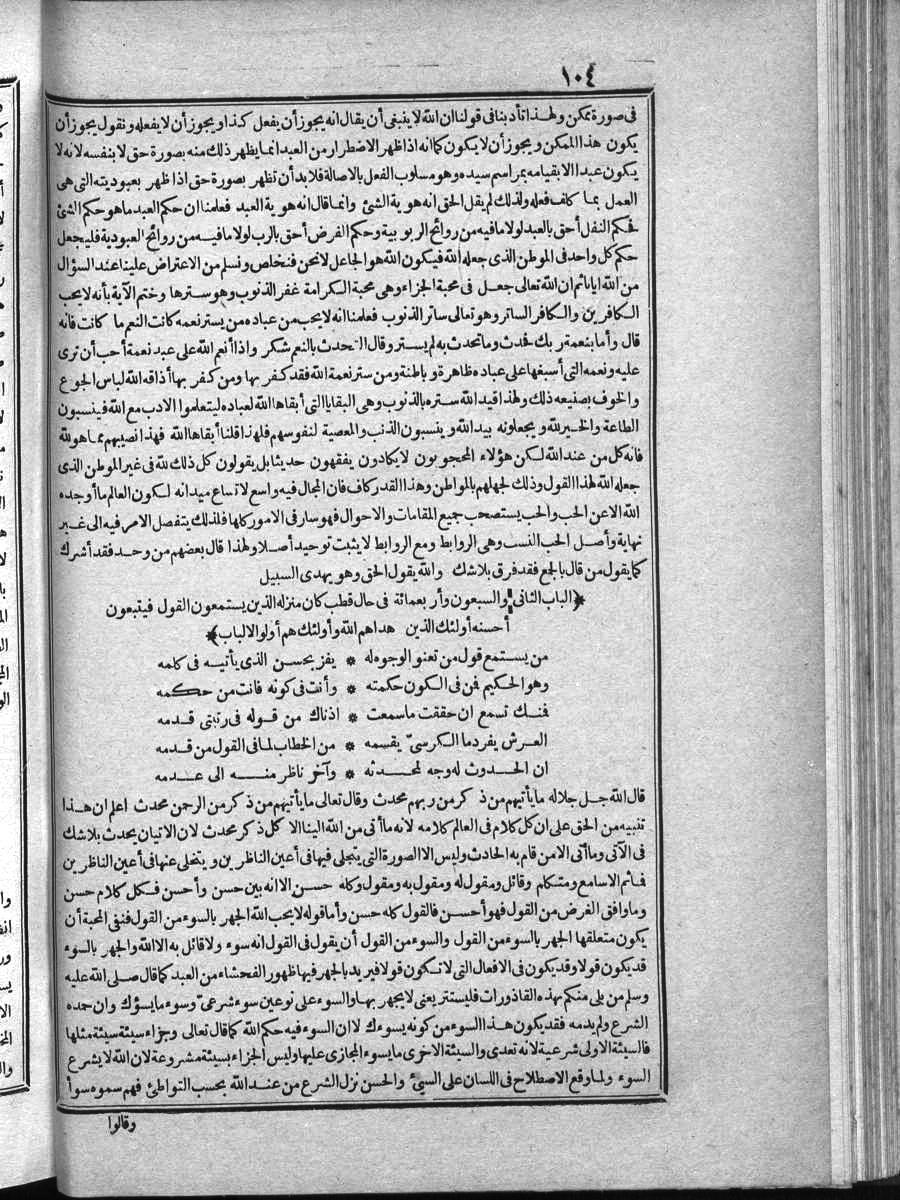 ١٠٤
فى صورة ممكن ولهذا تأدبنا فى قولنا ان الله لا ينبغى أن يقال انه يجوز أن يفعل كذا و يجوز أن لا يفعله ونقول يجوز أن
يكون هذا الممكن و يجوز أن لا يكون كما انه اذا ظهر الاضطرار من العبد انما يظهر ذلك منه بصورة حق لا بنفسه لانه لا
يكون عبدا الا بقيامه بمراسم سيده وهو مسلوب الفعل بالاصالة فلابد أن تظهر بصورة حق اذا ظهر بعبوديته التى هى
العمل بما كلف فعله ولذلك لم يقل الحق انه هوية الشئ وانما قال انه هوية العبد فعلمنا ان حكم العبد ما هو حكم الشئ
فحكم النفل أحق بالعبد لولا ما فيه من روائح الربوبية وحكم الفرض أحق بالرب لولا ما فيه من روائح العبودية فليجعل
حكم كل واحد فى الموطن الذى جعله الله فيكون الله هو الجاعل لا نحن فنخلص ونسلم من الاعتراض علينا عند السؤال
من الله ايانا ثم ان الله تعالى جعل فى محبة الجزاء وهى محبة الكرامة غفر الذنوب وهو سترها وختم الآية بأنه لا يحب
الكافرين والكافر الساتر وهو تعالى ساتر الذنوب فعلمنا انه لا يحب من عباده من يستر نعمه كانت النعم ما كانت فانه
قال وأما بنعمة ربك فحدث وما تحدث به لم يستر وقال التحدث بالنعم شكر واذا أنعم الله على عبد نعمة أحب أن ترى
عليه ونعمه التى أسبغها على عباده ظاهرة و باطنة ومن ستر نعمة الله فقد كفر بها ومن كفر بها أذاقه الله لباس الجوع
والخوف بصنيعه ذلك ولهذا قيد الله ستره بالذنوب وهى البقايا التى أبقاها الله لعباده ليتعلموا الادب مع الله فينسبون
الطاعة والخير لله و يجعلونه بيد الله و ينسبون الذنب والمعصية لنفوسهم فلهذا قلنا أبقاها الله فهذا نصيبهم مما هو لله
فانه كل من عند الله لكن هؤلاء المحجوبون لا يكادون يفقهون حديثا بل يقولون كل ذلك لله فى غير الموطن الذى
جعله الله لهذا القول وذلك لجهلهم بالمواطن وهذا القدر كاف فان المجال فيه واسع لاتساع ميدانه لكون العالم ما أوجده
الله الا عن الحب والحب يستصحب جميع المقامات والاحوال فهو سار فى الامور كلها فلذلك يتفصل الامر فيه الى غير
نهاية وأصل الحب النسب وهى الروابط ومع الروابط لا يثبت توحيد أصلا ولهذا قال بعضهم من وحد فقد أشرك
كما يقول من قال بالجمع فقد فرق بلاشك والله يقول الحق وهو يهدى السبيل
﴿الباب الثانى والسبعون وأربعمائة فى حال قطب كان منزله الذين يستمعون القول فيتبعون
أحسنه أولئك الذين هداهم الله وأولئك هم أولو الالباب﴾
من يستمع قول من تعنو الوجوه له * يفز بحسن الذى يأتيه فى كلمه
وهو الحكيم فمن فى الكون حكمته * وأنت فى كونه فانت من حكمه
فمنك تسمع ان حققت ما سمعت * اذناك من قوله فى رتبتى قدمه
العرش يفرد ما الكرسىّ يقسمه * من الخطاب لما فى القول من قدمه
ان الحدوث له وجه لمحدثه * وآخر ناظر منه الى عدمه
قال الله جل جلاله ما يأتيهم من ذكر من ربهم محدث وقال تعالى ما يأتيهم من ذكر من الرحمن محدث اعلم ان هذا
تنبيه من الحق على ان كل كلام فى العالم كلامه لانه ما أتى من الله الينا الا كل ذكر محدث لان الاتيان يحدث بلاشك
فى الآتى وما أتى الا من قام به الحادث وليس الا الصورة التى يتجلى فيها فى أعين الناظرين و يتخلى عنها فى أعين الناظرين
فما ثم الا سامع ومتكلم وقائل ومقول له ومقول به ومقول وكله حسن الا انه بين حسن وأحسن فكل كلام حسن
وما وافق الغرض من القول فهو أحسن فالقول كله حسن وأما قوله لا يحب الله الجهر بالسوء من القول فنفى المحبة أن
يكون متعلقها الجهر بالسوء من القول والسوء من القول أن يقول فى القول انه سوء ولا قائل به الا الله والجهر بالسوء
قد يكون قولا وقد يكون فى الافعال التى لا تكون قولا فيريد بالجهر فيها ظهور الفحشاء من العبد كما قال صلى الله عليه
وسلم من بلى منكم بهذه القاذورات فليستتر يعنى لا يجهر بها والسوء على نوعين سوء شرعىّ وسوء ما يسؤك وان حمده
الشرع ولم يذمه فقد يكون هذا السوء من كونه يسوءك لا ان السوء فيه حكم الله كما قال تعالى وجزاء سيئة سيئة مثلها
فالسيئة الاولى شرعية لانه تعدى والسيئة الاخرى ما يسوء المجازى عليها وليس الجزاء بسيئة مشروعة لان الله لا يشرع
السوء ولما وقع الاصطلاح فى اللسان على السيئ والحسن نزل الشرع من عند الله بحسب التواطئ فهم سموه سوأ
وقالوا